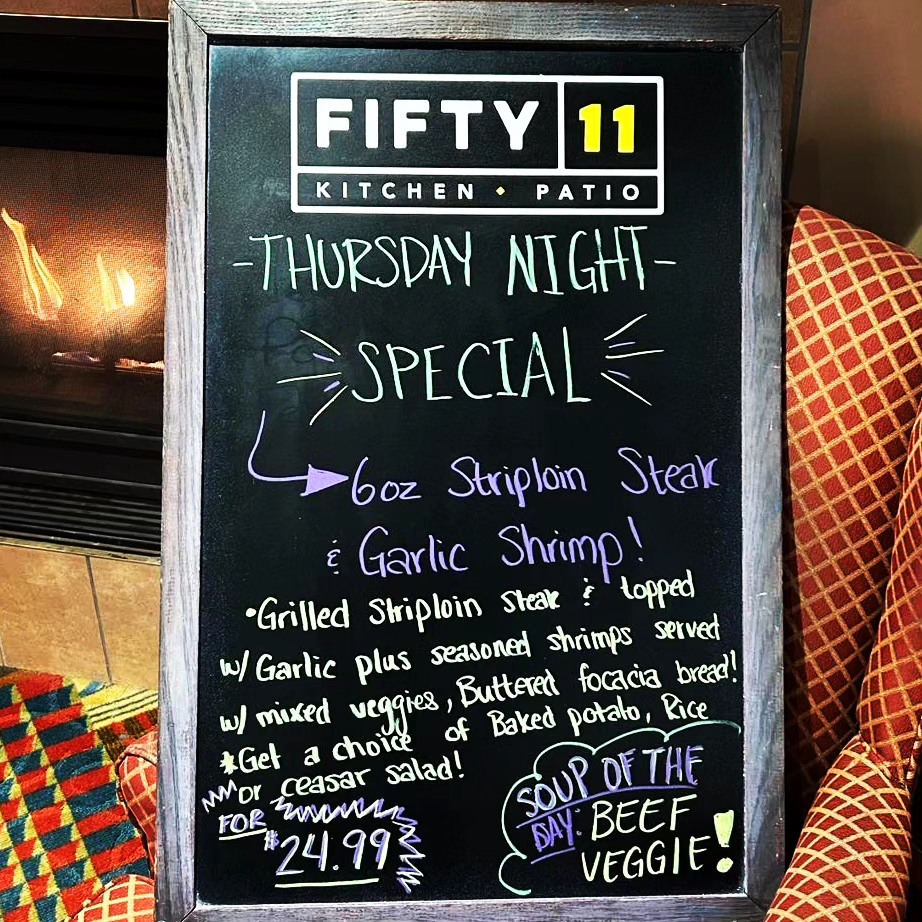 FIFTY 11
KITCHEN • PATIO
-THURSDAY NIGHT-
SPECIAL
6oz Striploin Steak
& Garlic Shrimp!
•Grilled Striploin Steak & topped
w/ Garlic plus seasoned shrimps served
w/ mixed veggies, Buttered focacia bread!
*Get a choice of Baked potato, Rice
or ceasar salad!
FOR
$24.99
SOUP OF THE
DAY: BEEF
VEGGIE!